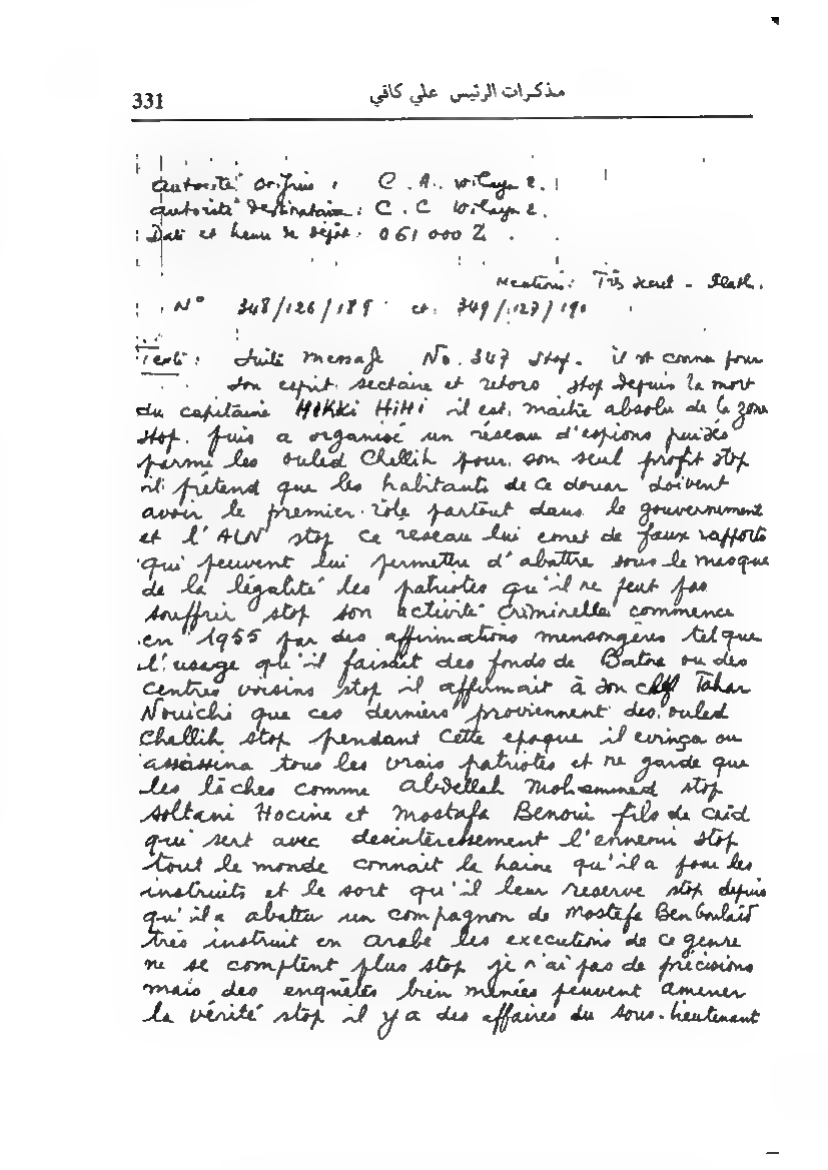 331
مذكرات الرئيس علي كافي
autorité Origine : C. A. Wilaya 2.
autorité destinataire : C. C Wilaya 2.
Date et heure de dépôt : 061000Z
Mentions : Très secret - Flash.
N° 348/126/189 et 349/127/190
Texte : Suite message No. 347 stop. il est connu pour
son esprit sectaire et retors stop depuis la mort
du capitaine HIHI il est maître absolu de la zone
stop. puis a organisé un réseau d'espions puisés
parmi les ouled Chellih pour son seul profit stop
il prétend que les habitants de ce douar doivent
avoir le premier rôle partout dans le gouvernement
et l'ALN stop ce reseau lui emet de faux rapports
qui peuvent lui permettre d'abattre sous le masque
de la légalité les patriotes qu'il ne peut pas
souffrir stop son activité criminelle commence
en 1955 par des affirmations mensongères tel que
l'usage qu'il faisait des fonds de Batna ou des
centres voisins stop il affirmait à son chef Tahar
Nouichi que ces derniers proviennent des ouled
Chellih stop pendant cette epoque il evinça ou
assassina tous les vrais patriotes et ne garde que
les lâches comme abdellah Mohammed stop
soltani Hocine et Mostafa Benoui fils de caid
qui sert avec desintéressement l'ennemi stop
tout le monde connait la haine qu'il a pour les
instruits et le sort qu'il leur reserve stop depuis
qu'il a abattu un compagnon de Mostefa Benboulaid
très instruit en arabe les executions de ce genre
ne se comptent plus stop je n'ai pas de précisions
mais des enquêtes bien menées peuvent amener
la vérité stop il y a des affaires du sous-lieutenant